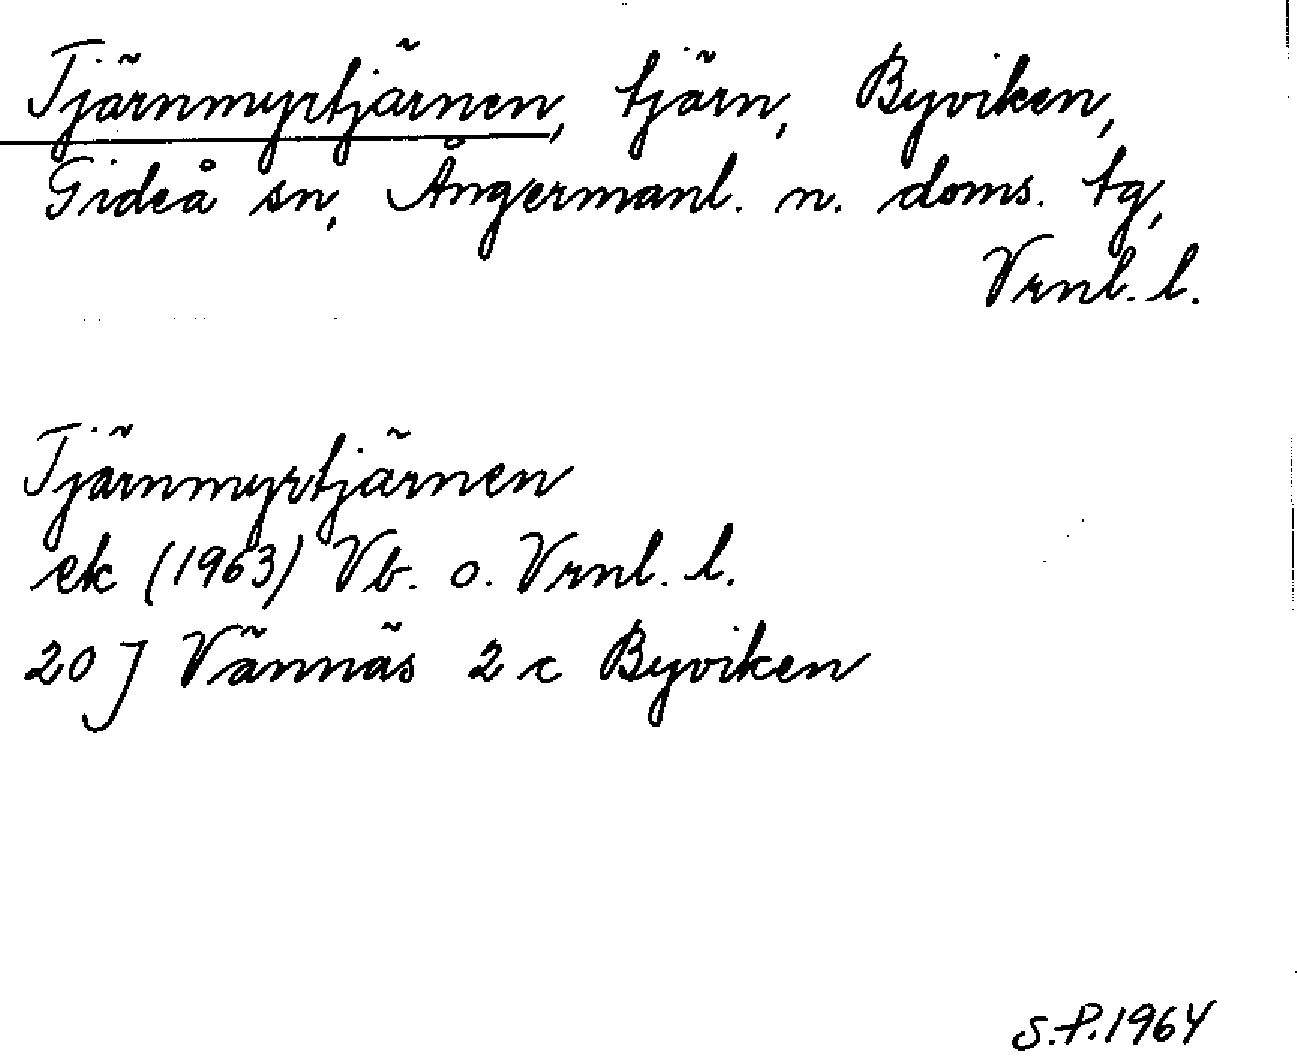 Tjärnmyrtjärnen, tjärn, Byviken,
Gideå sn, Ångermanl. n. doms. tg,
Vrnl. l.
Tjärnmyrtjärnen
ek (1963) Vb. o. Vrnl. l.
20 J Vännäs 2 c Byviken
S.P. 1964